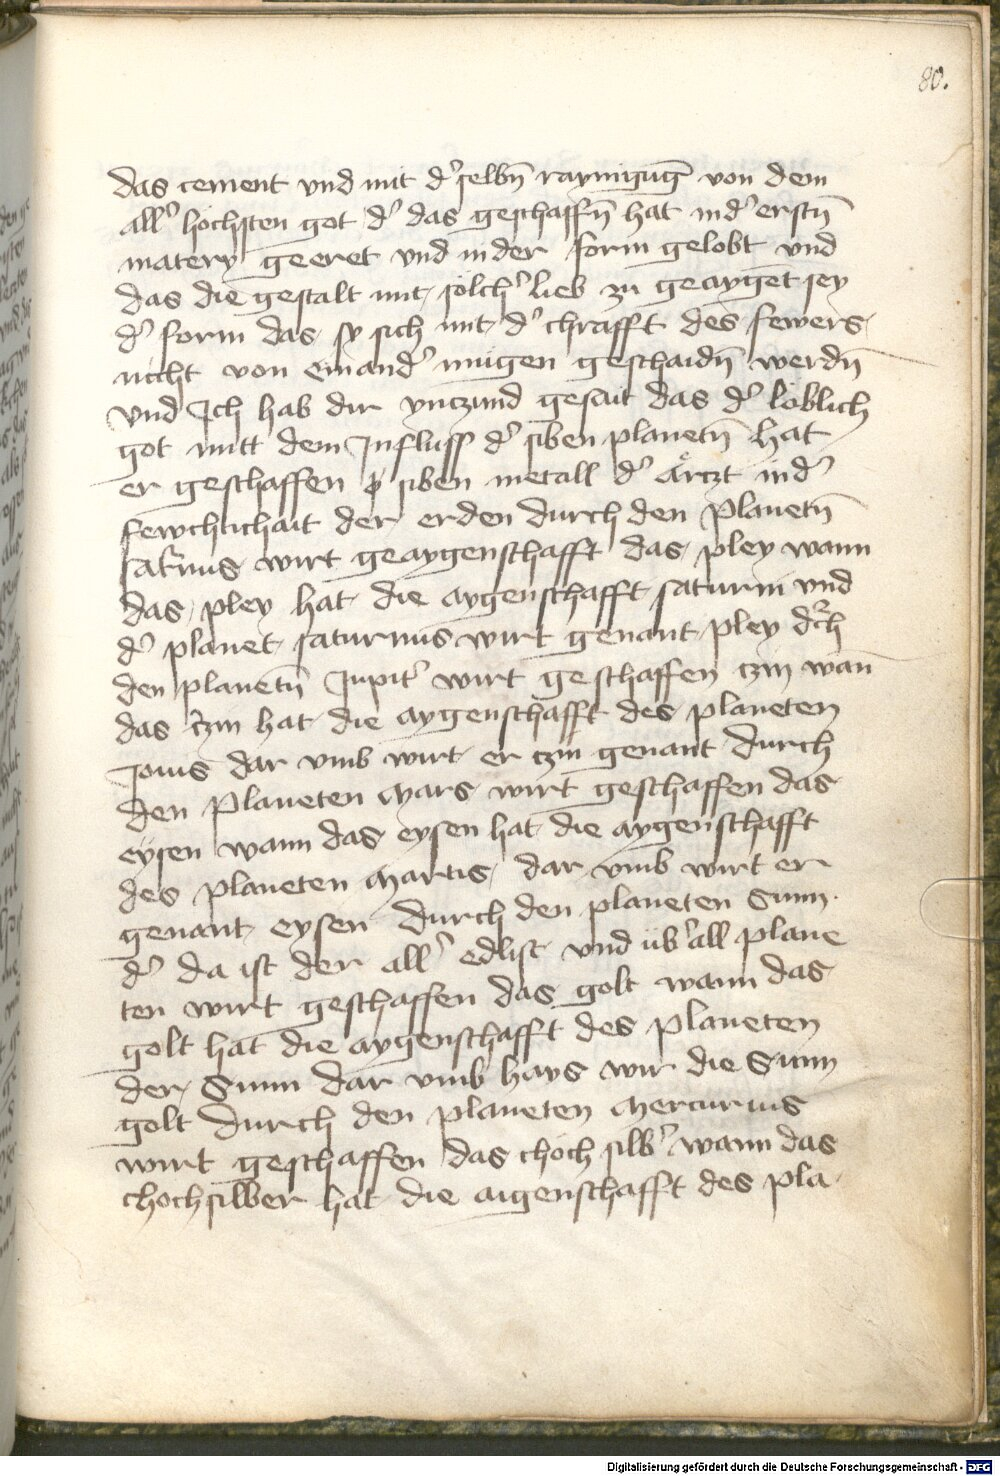 80.
das cement vnd mit d' selbn̄ raynigūg von dem
all' höchsten got d' das geschaffn̄ hat in d' erstn̄
matery geeret vnd in der form gelobt vnd
das die gestalt mit solch' lieb zu geayget sey
d' form das sy sich mit d' chrafft des fewers
nicht von einand' mügen geschaidn̄ werdn̄
vnd Ich hab dir yuczund gesait das d' löblich
got mitt dem Influss d' siben planetn̄ hat
er geschaffen siben metall d' ärczt in d'
fewchtichait der erden durch den Planetn̄
saturnus wirt geaygenschafft das pley wann
das pley hat die aygenschafft saturni vnd
d' planet saturnus wirt genant pley d'ch
den planetn̄ Jupit' wirt geschaffen czin wan̄
das czin hat die aygenschafft des planeten
Jouis dar vmb wirt er czin genant durch
den Planeten Mars wirt geschaffen das
eysen wann das eysen hat die aygenschafft
des planeten Martis dar vmb wirt er
genant eysen durch den planeten Sunn
d' da ist der all' edlist vnd üb' all plane
ten wirt geschaffen das golt wann das
golt hat die aygenschafft des planeten
der Sunn dar vmb hays wir die Sunn
golt durch den planeten Mercurius
wirt geschaffen das choch silb' wann das
chochsilber hat die aigenschafft des pla
Digitalisierung gefördert durch die Deutsche Forschungsgemeinschaft - DFG